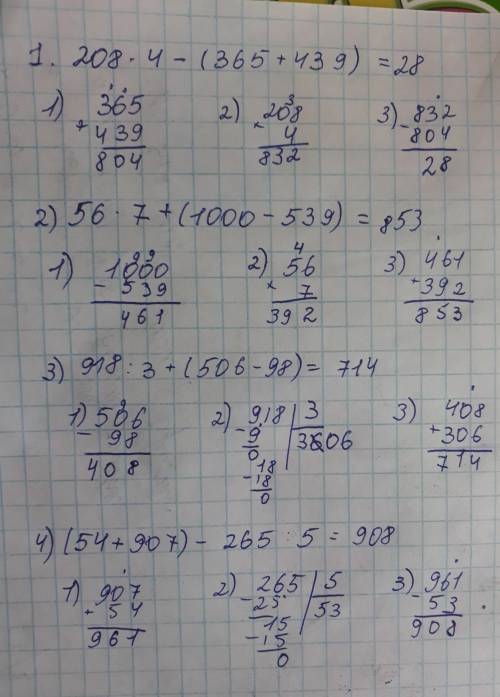 1. 208 · 4 - (365 + 439) = 28
1) 365 + 439 804
2) 3 208 × 4 832
3) 832 - 804 28
2) 56 · 7 + (1000 - 539) = 853
1) 99 1000 - 539 461
2) 4 56 × 7 392
3) 461 + 392 853
3) 918 : 3 + (506 - 98) = 714
1) 9 506 - 98 408
2) 918 3 - 9 306 0 18 - 18 0
3) 408 + 306 714
4) (54 + 907) - 265 : 5 = 908
1) 907 + 54 961
2) 265 5 - 25 53 15 - 15 0
3) 961 - 53 908